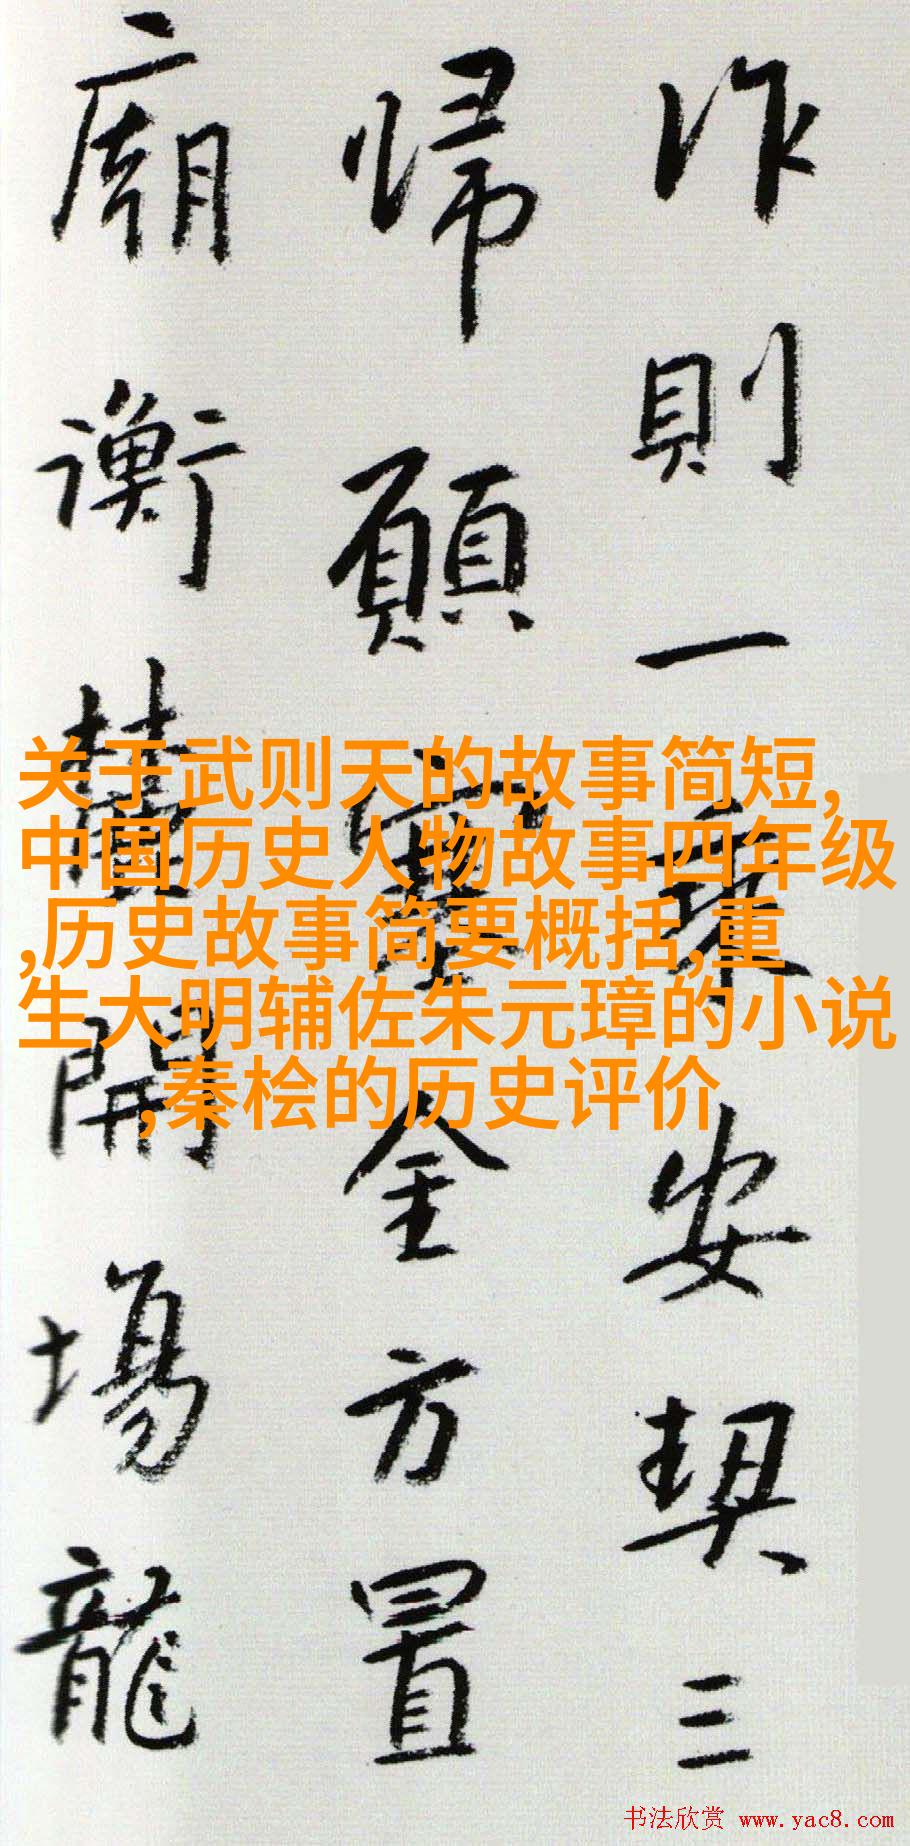 作則一乘安契三
歸願塞金方置
廟衡橫開場龍
关于武则天的故事简短,
中国历史人物故事四年级
,历史故事简要概括,重
生大明辅佐朱元璋的小说
,秦桧的历史评价
书法欣赏 www.yac8.com